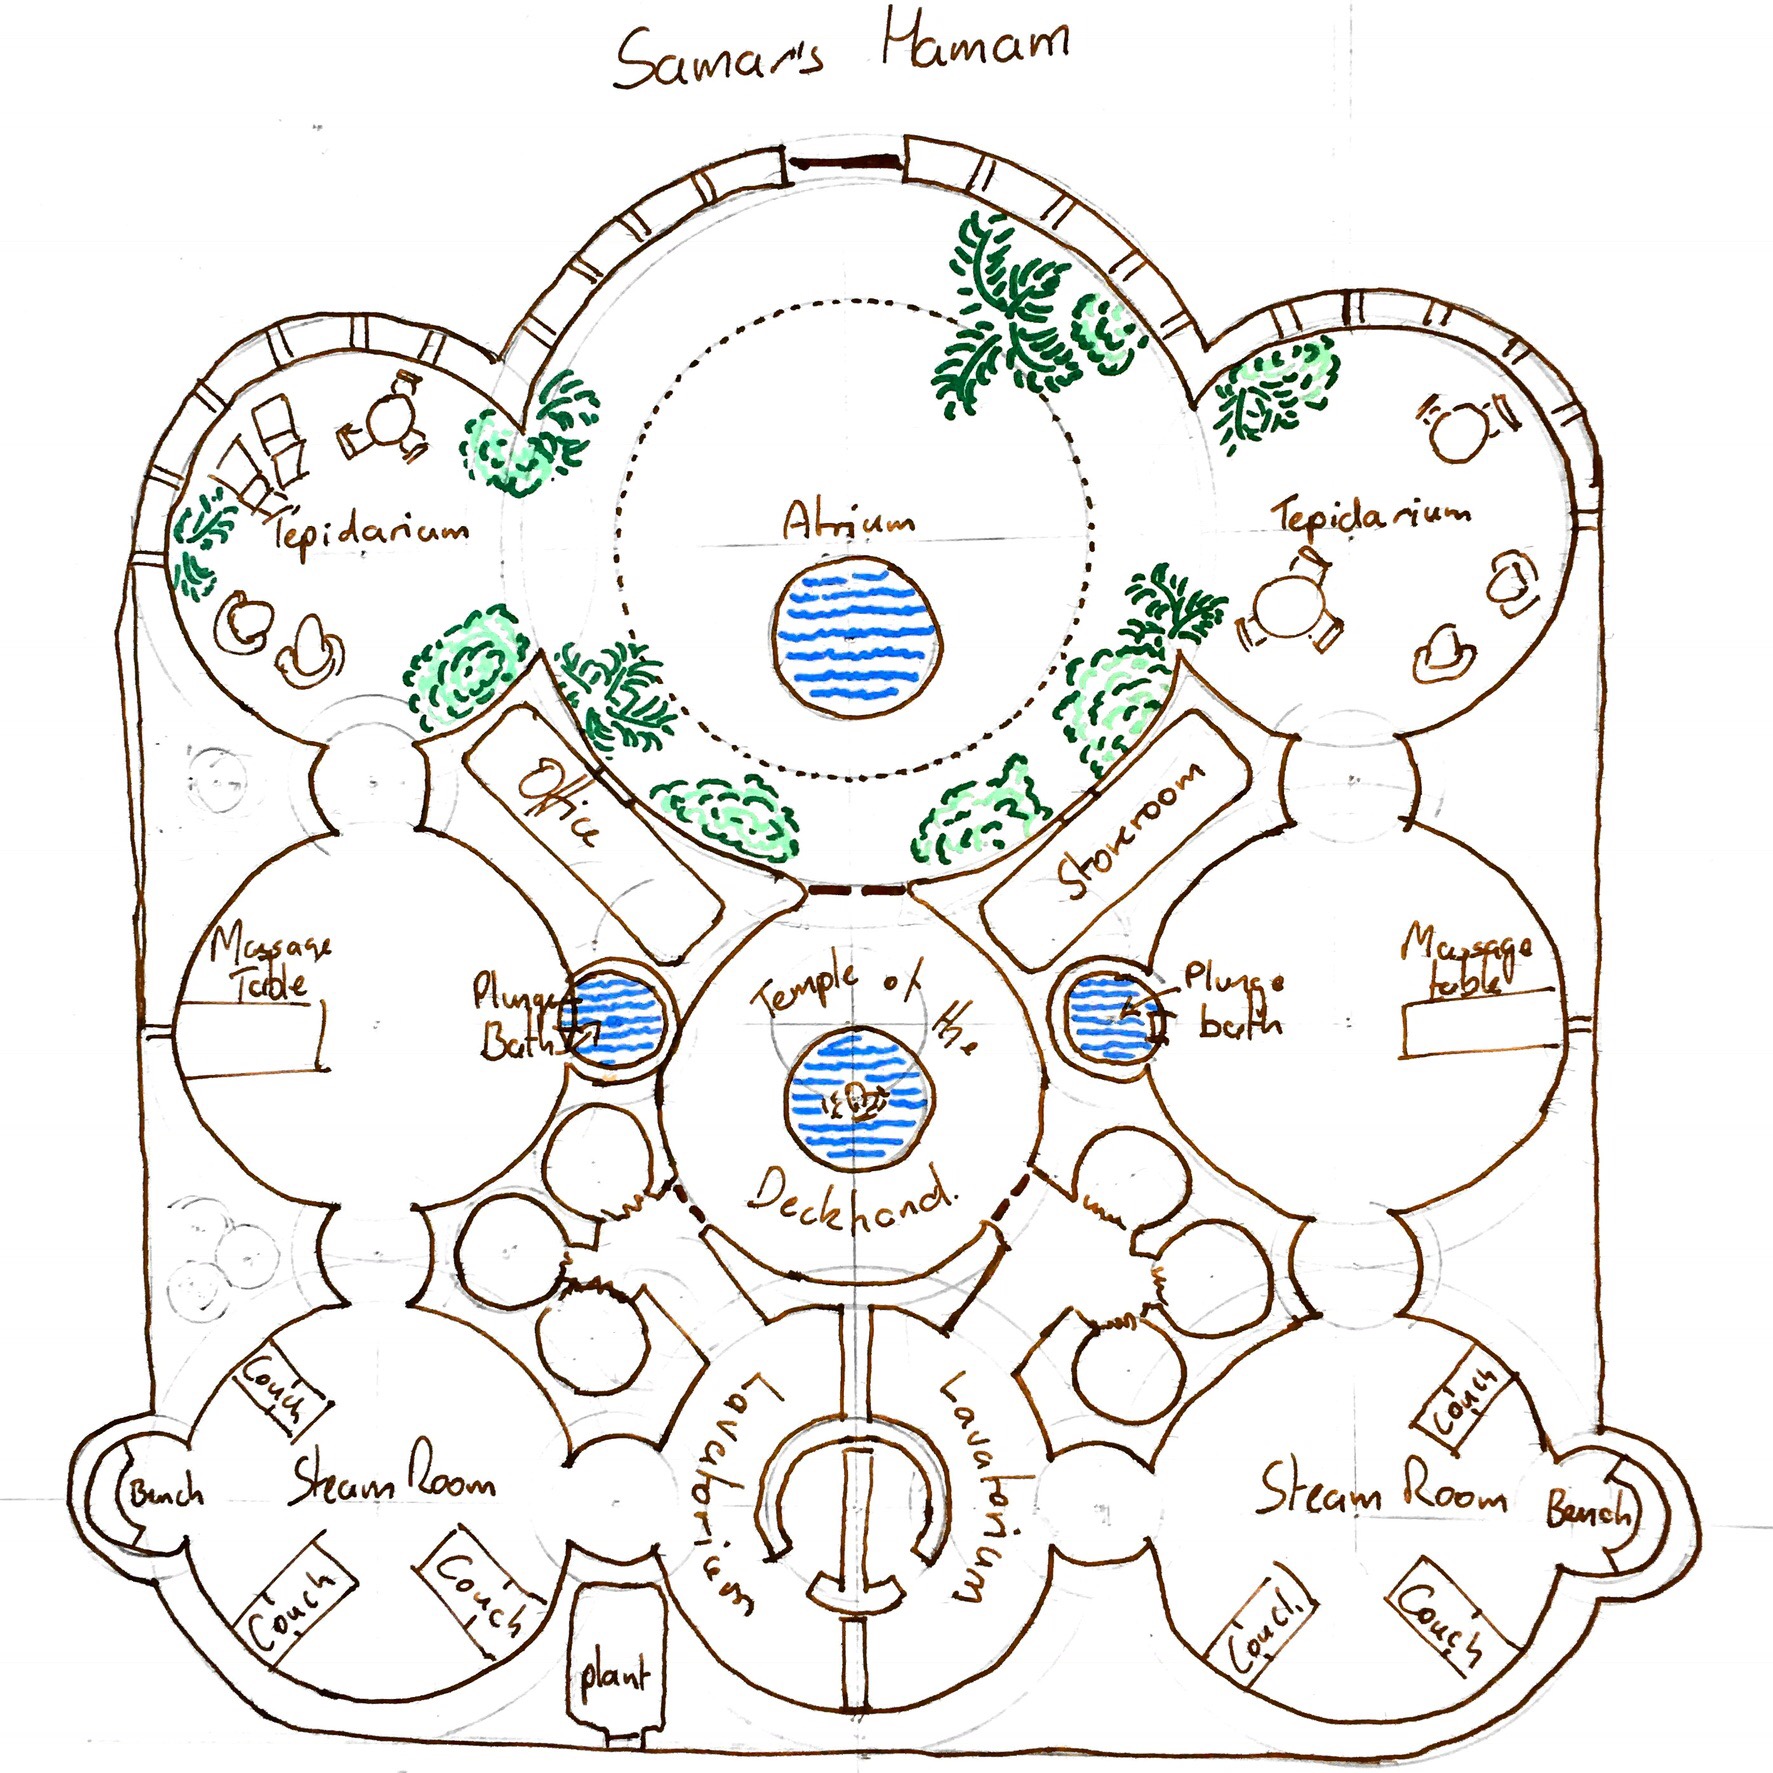 Samar's Hamam
Tepidarium
Atrium
Tepidarium
Office
Storeroom
Massage
Table
Plunge
Bath
Temple of
The
Deckhand.
Plunge
bath
Massage
table
Couch
Bench
Steam Room
Couch
Couch
Lavatorium
Lavatorium
Couch
Steam Room
Bench
Couch
Couch
plant